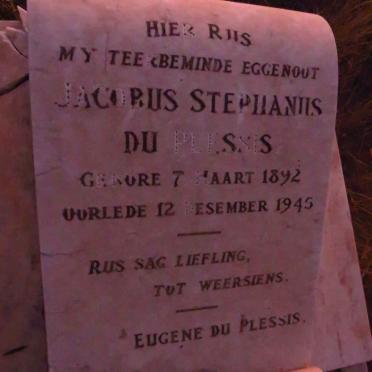 HIER RUS
MY TEERBEMINDE EGGENOOT
JACOBUS STEPHANUS
DU PLESSIS
GEBORE 7 MAART 1892
OORLEDE 12 DESEMBER 1945
RUS SAG LIEFLING,
TOT WEERSIENS.
EUGENE DU PLESSIS.